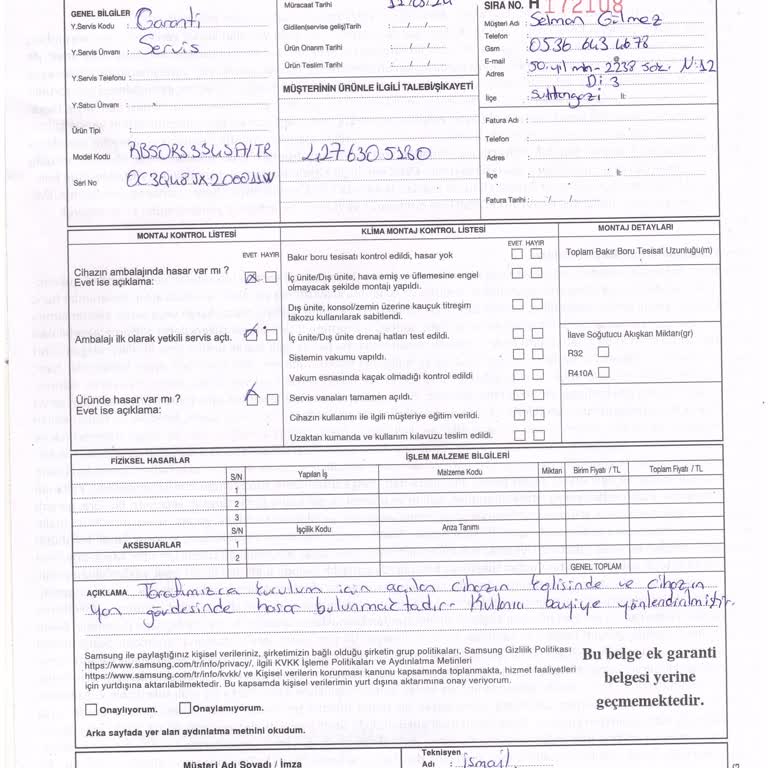 GENEL BİLGİLER
Y.Servis Kodu : Garanti
Y.Servis Ünvanı : Servis
Y.Servis Telefonu :
Y.Satıcı Ünvanı :
Ürün Tipi :
Model Kodu RB50RS334SA/TR
Seri No 0C3Q48JX200011W
Müracaat Tarihi
Gidilen(servise geliş)Tarih : / /
Ürün Onarım Tarihi : / /
Ürün Teslim Tarihi : / /
MÜŞTERİNİN ÜRÜNLE İLGİLİ TALEBİ/ŞİKAYETİ
4276305180
SIRA NO. H 172108
Müşteri Adı : Selman Gülmez
Telefon
Gsm : 0536 643 4678
E-mail
Adres : 50.yıl mh- 2238 sok. N:12
Di 3
İlçe : Sultangazi İl:
Fatura Adı :
Telefon :
Adres :
İlçe : İl:
Fatura Tarihi : / /
MONTAJ KONTROL LİSTESİ
EVET HAYIR
Cihazın ambalajında hasar var mı ?
Evet ise açıklama:
Ambalajı ilk olarak yetkili servis açtı.
Üründe hasar var mı ?
Evet ise açıklama:
KLİMA MONTAJ KONTROL LİSTESİ
EVET HAYIR
Bakır boru tesisatı kontrol edildi, hasar yok
İç ünite/Dış ünite, hava emiş ve üflemesine engel
olmayacak şekilde montajı yapıldı.
Dış ünite, konsol/zemin üzerine kauçuk titreşim
takozu kullanılarak sabitlendi.
İç ünite/Dış ünite drenaj hatları test edildi.
Sistemin vakumu yapıldı.
Vakum esnasında kaçak olmadığı kontrol edildi
Servis vanaları tamamen açıldı.
Cihazın kullanımı ile ilgili müşteriye eğitim verildi.
Uzaktan kumanda ve kullanım kılavuzu teslim edildi.
MONTAJ DETAYLARI
Toplam Bakır Boru Tesisat Uzunluğu(m)
İlave Soğutucu Akışkan Miktarı(gr)
R32
R410A
FİZİKSEL HASARLAR
İŞLEM MALZEME BİLGİLERİ
S/N Yapılan İş Malzeme Kodu Miktarı Birim Fiyatı / TL Toplam Fiyatı / TL
1
2
3
S/N İşçilik Kodu Arıza Tanımı
AKSESUARLAR 1
2
GENEL TOPLAM
AÇIKLAMA Tarafımızca kurulum için açılan cihazın içerisinde ve cihazın
yan gövdesinde hasar bulunmaktadır. Kullanıcı bayiye yönlendirilmiştir.
Samsung ile paylaştığınız kişisel verileriniz, şirketimizin bağlı olduğu şirketin grup politikaları, Samsung Gizlilik Politikası
https://www.samsung.com/tr/info/privacy/, ilgili KVKK İşleme Politikaları ve Aydınlatma Metinleri
https://www.samsung.com/tr/info/kvkk/ ve Kişisel verilerin korunması kanunu kapsamında toplanmakta, hizmet faaliyetleri
için yurtdışına aktarılabilmektedir. Bu kapsamda kişisel verilerimin yurt dışına aktarımına onay veriyorum.
Onaylıyorum. Onaylamıyorum.
Arka sayfada yer alan aydınlatma metnini okudum.
Bu belge ek garanti
belgesi yerine
geçmemektedir.
Müşteri Adı Soyadı / İmza
Teknisyen
Adı : İsmail